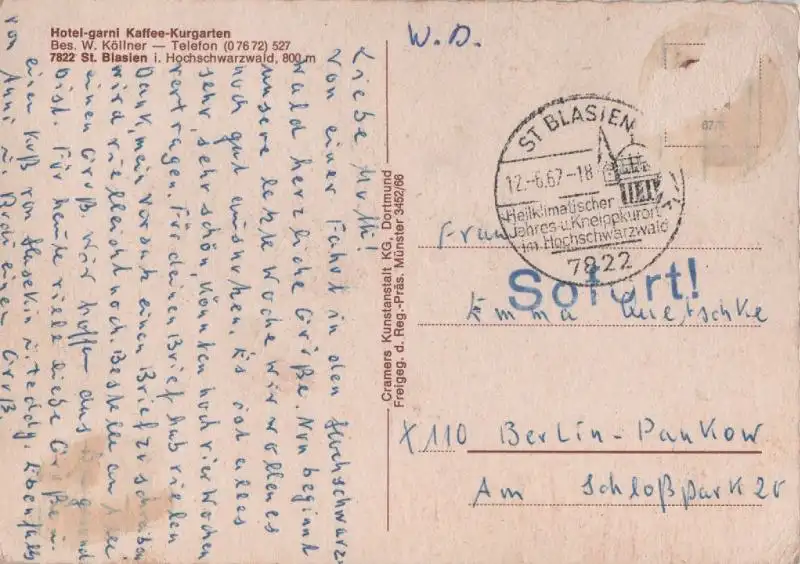 Hotel-garni Kaffee-Kurgarten
Bes. W. Köllner — Telefon (0 76 72) 527
7822 St. Blasien i. Hochschwarzwald, 800 m
Liebe Mutti!
Von einer Fahrt in den Hochschwarz-
wald herzliche Grüße. Nun beginnt
unsere letzte Woche. Wir wollen es
noch gut ausnutzen. Es ist alles
sehr, sehr schön, könnten noch vier Wochen
vertragen. Für deinen Brief hab vielen
Dank, mein Vorsatz einen Brief zu schreiben
wird vielleicht noch. Bestelle an
einen Gruß. Wir hoffen das gesund
bist. Für heute viele liebe Grüße u.
einen Kuß von Husekin u. Teddy. Ebenfalls
von Anni u. Rudi einen Gruß.
Cramers Kunstanstalt KG, Dortmund
Freigeg. d. Reg.-Präs. Münster 3452/66
W. D.
ST BLASIEN
12.-6.67-18
Heilklimatischer
Jahres-u.Kneippkurort
im Hochschwarzwald
7822
Frau
Sofort!
Emma Quetschke
X 110 Berlin-Pankow
Am Schloßpark 20